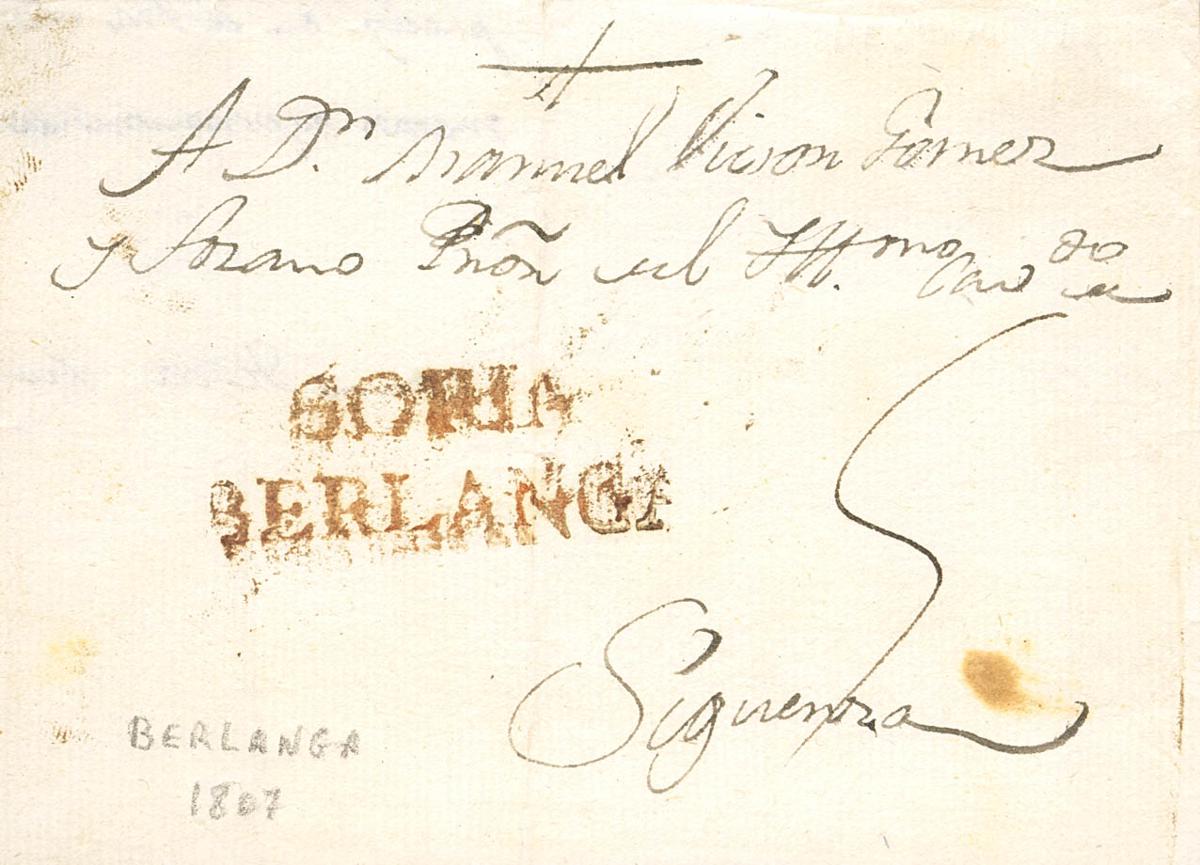 A D.n Manuel Vicson Gomez
y Lozano Prõn del Ill.mo
SORIA
BERLANGA
Siguenza
BERLANGA
1807